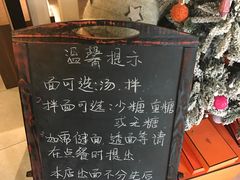 温馨提示
面可选:汤.拌
拌面可选:沙糖 蜜糖
或无糖
加麻 健面 透面等请
在点餐时提出
本店出面不分先后